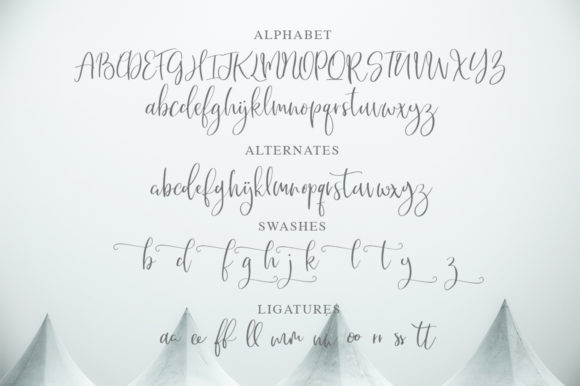 ALPHABET
ABCDEFGHIJKLMNOPQRSTUVWXYZ
abcdefghijklmnopqrstuvwxyz
ALTERNATES
abcdefghijklmnopqrstuvwxyz
SWASHES
b d f g h j k l t y z
LIGATURES
aa ee ff ll mm nn oo rr ss tt